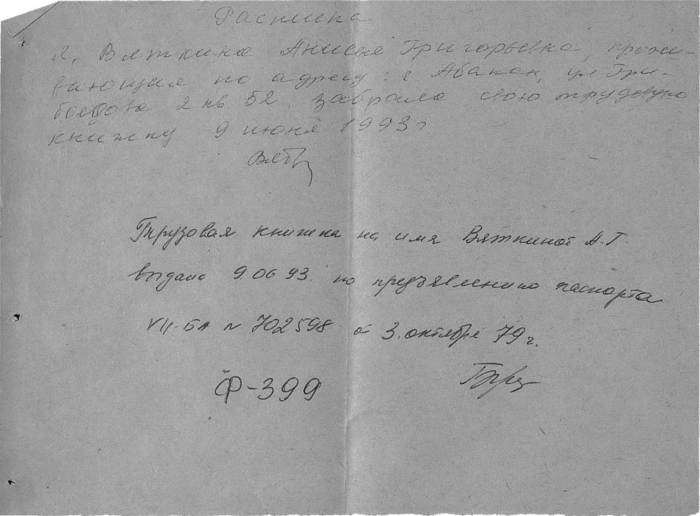 Расписка
Я, Вяткина Анисья Григорьевна, прожи-
вающая по адресу: г Абакан, ул Гри-
боедова 2 кв 52. забрала свою трудовую
книжку 9 июня 1993 г
Вят
Трудовая книжка на имя Вяткиной А.Г
выдана 9 06 93. по предъявлению паспорта
VII-БА N 702598 от 3. октября 79 г.
Ф-399